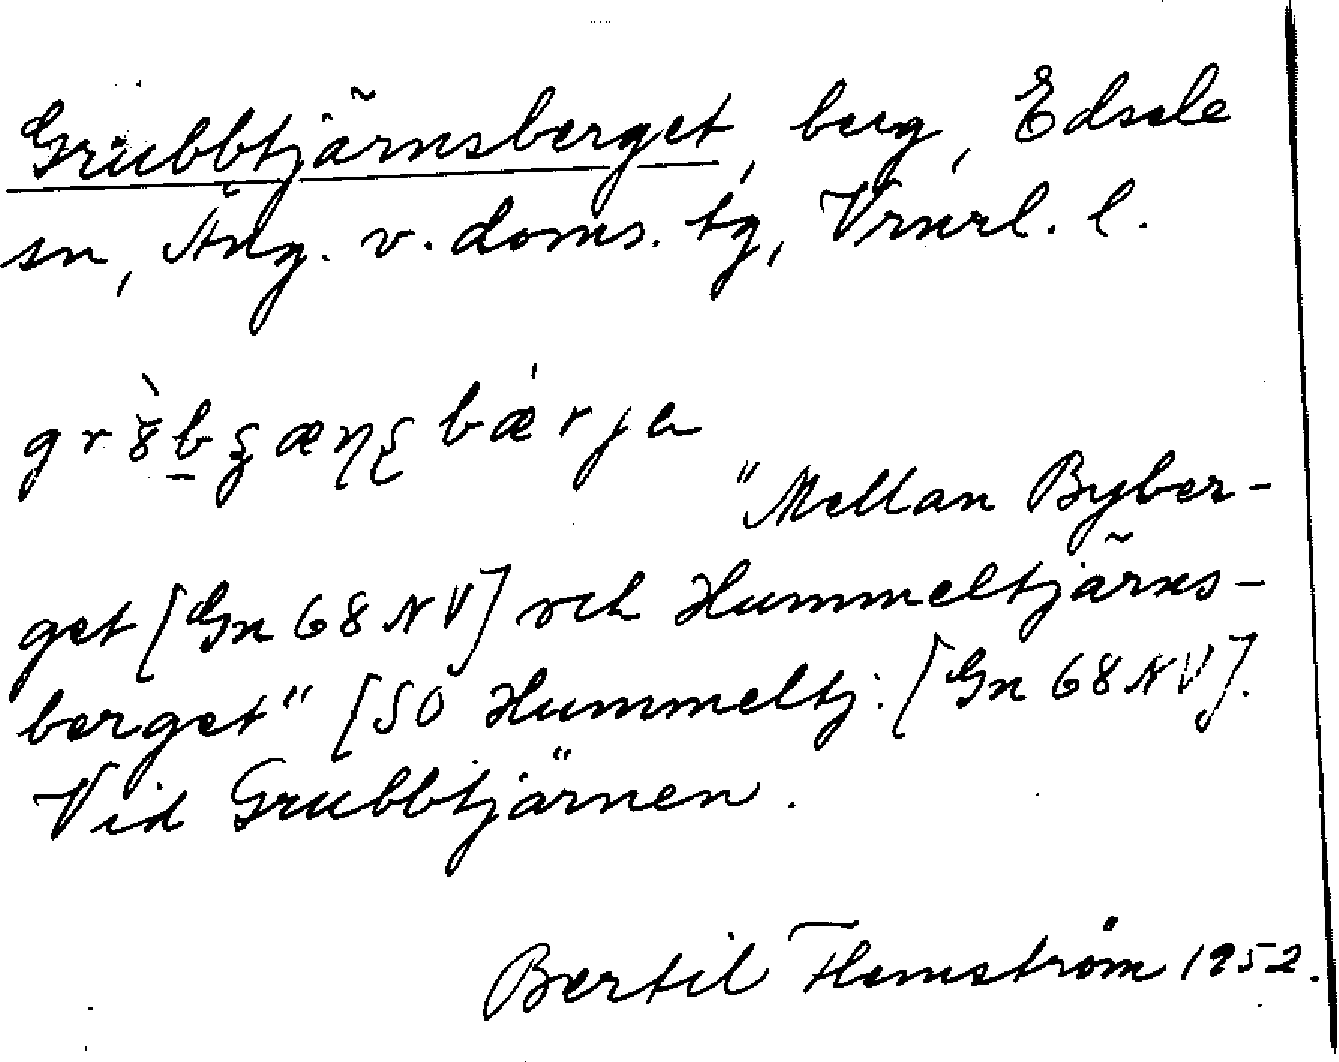 Grubbtjärnsberget, berg, Edsele
sn, Ång. v. doms. tg, Vrnrl. l.
bærja
"Mellan Byber-
get [Gn 68 NV] och Hummeltjärns-
berget" [SO Hummeltj: [Gn 68 NV].
Vid Grubbtjärnen.
Bertil Flemström 1952.